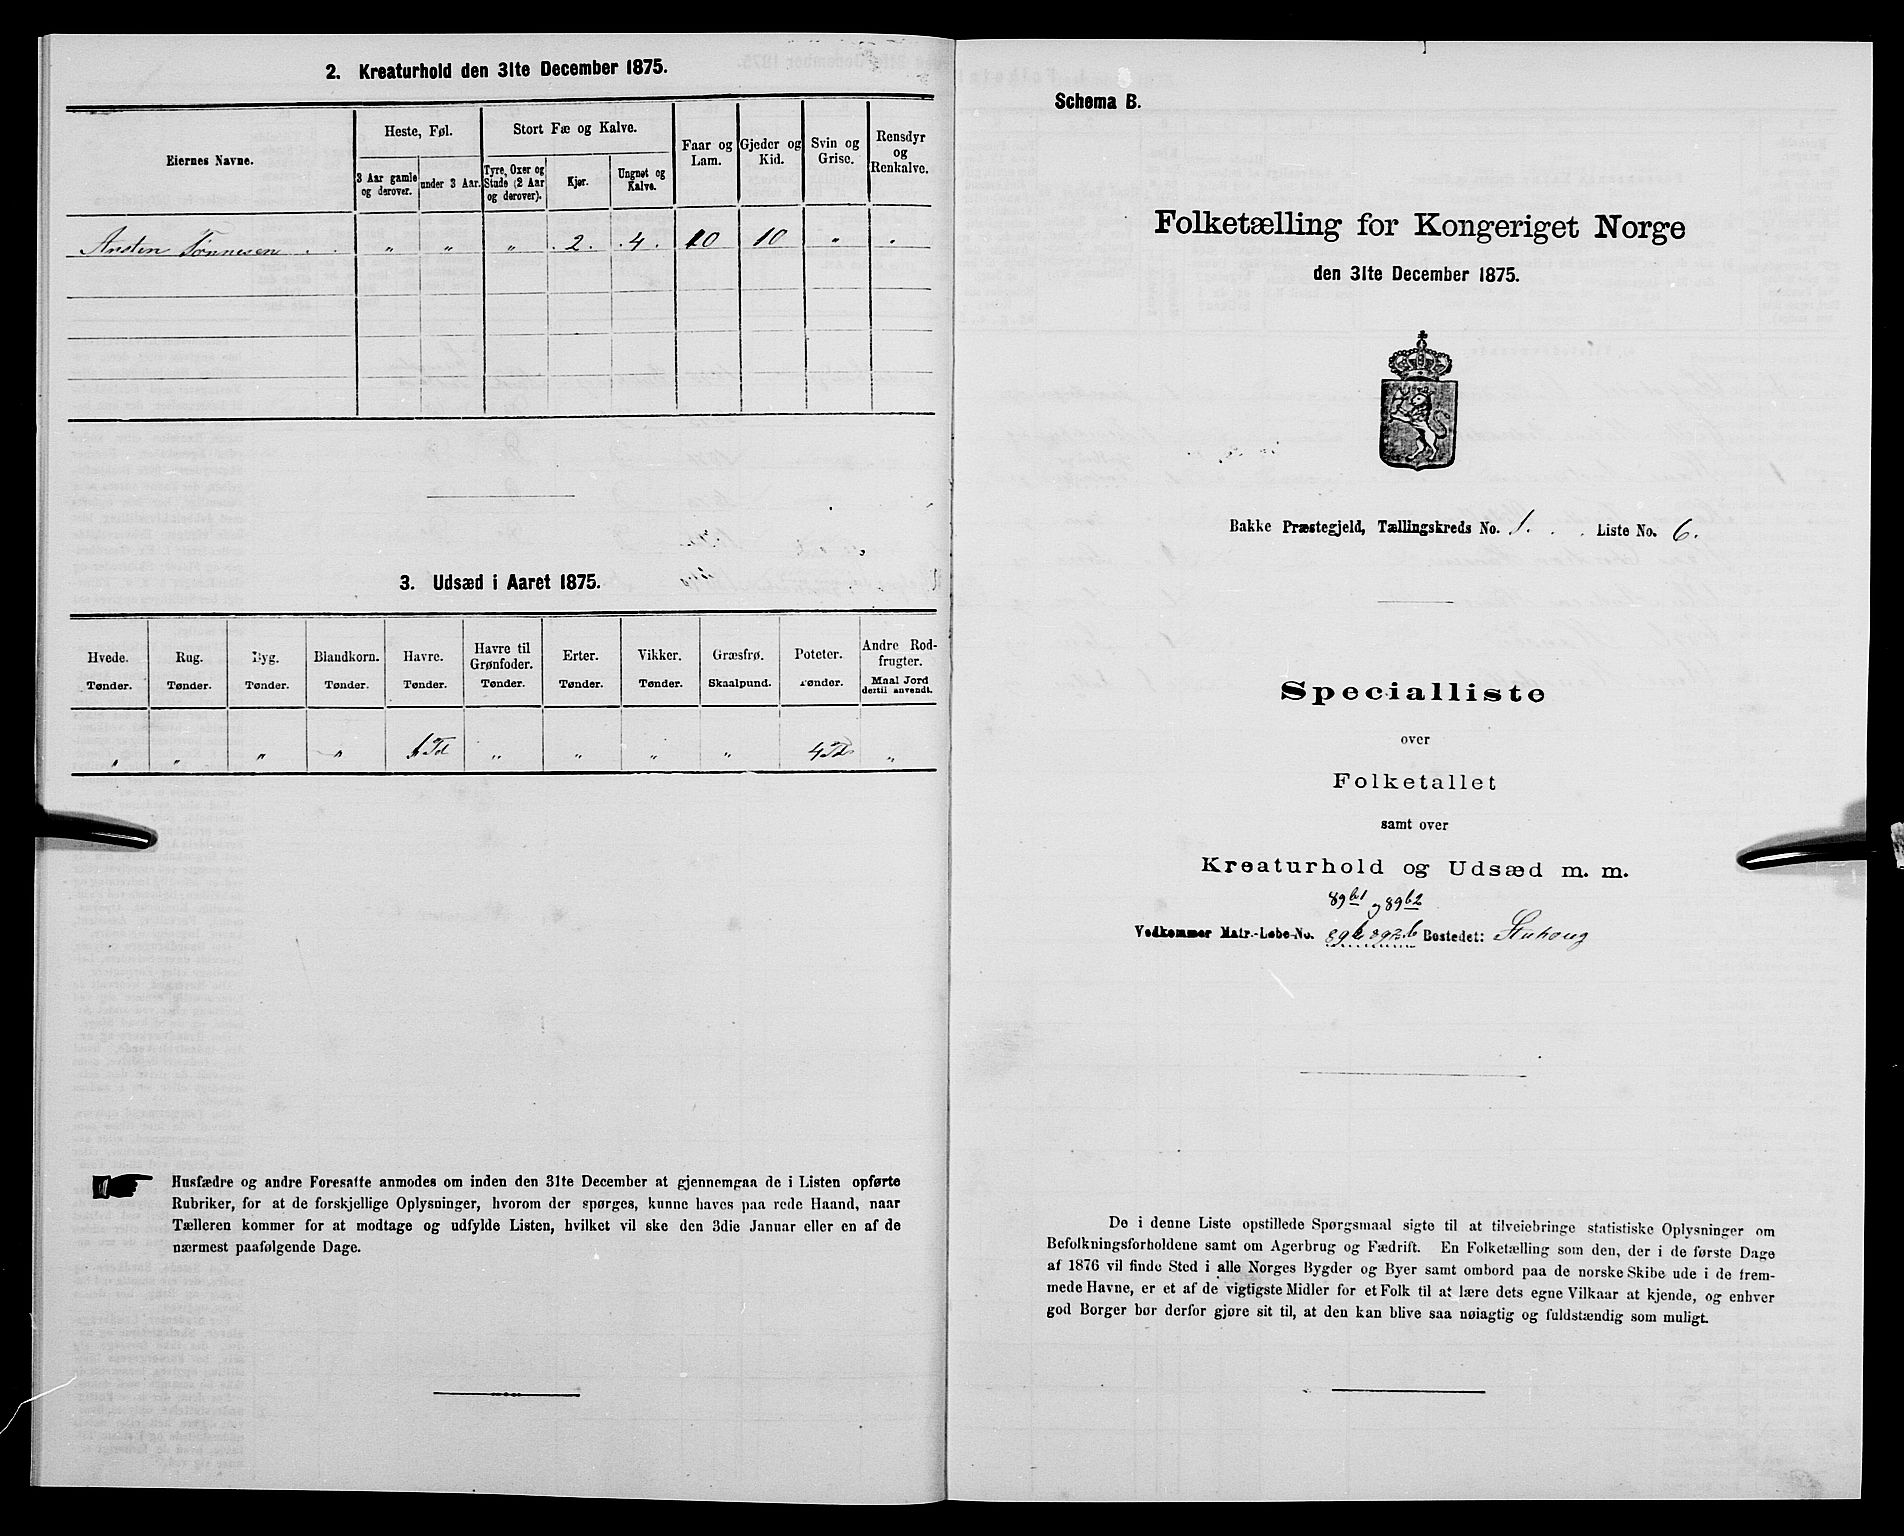 2. Kreaturhold den 31te December 1875.
Eiernes Navne.
Heste, Føl.
3 Aar gamle og derover.
under 3 Aar.
Stort Fæ og Kalve.
Tyre, Oxer og Stude (2 Aar og derover).
Kjør.
Ungnøt og Kalve.
Faar og Lam.
Gjeder og Kid.
Svin og Grise.
Rensdyr og Renkalve.
Ansten Tønnesen „ „ „ 2. 4. 10 10 „ „
3. Udsæd i Aaret 1875.
Hvede. Rug. Byg. Blandkorn. Havre. Havre til Grønfoder. Erter. Vikker. Græsfrø. Poteter. Andre Rodfrugter.
Tønder. Tønder. Tønder. Tønder. Tønder. Tønder. Tønder. Tønder. Skaalpund. Tønder. Maal Jord dertil anvendt.
„ „ „ „ 1 Td „ „ „ „ 4 Td „
Husfædre og andre Foresatte anmodes om inden den 31te December at gjennemgaa de i Listen opførte
Rubriker, for at de forskjellige Oplysninger, hvorom der spørges, kunne haves paa rede Haand, naar
Tælleren kommer for at modtage og udfylde Listen, hvilket vil ske den 3die Januar eller en af de
nærmest paafølgende Dage.
Schema B.
Folketælling for Kongeriget Norge
den 31te December 1875.
Bakke Præstegjeld, Tællingskreds No. 1. Liste No. 6.
Specialliste
over
Folketallet
samt over
Kreaturhold og Udsæd m. m.
89b1 og 89b2
Vedkommer Matr.-Løbe-No. 89b 892b Bostedet: Stuhoug
De i denne Liste opstillede Spørgsmaal sigte til at tilveiebringe statistiske Oplysninger om
Befolkningsforholdene samt om Agerbrug og Fædrift. En Folketælling som den, der i de første Dage
af 1876 vil finde Sted i alle Norges Bygder og Byer samt ombord paa de norske Skibe ude i de frem-
mede Havne, er et af de vigtigste Midler for et Folk til at lære dets egne Vilkaar at kjende, og enhver
god Borger bør derfor gjøre sit til, at den kan blive saa nøiagtig og fuldstændig som muligt.